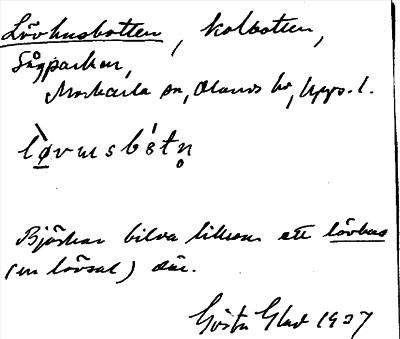 Lövhusbotten, kolbotten,
Sågparken,
Morkarla sn, Olands hd, Upps. l.
lø̀vusbótn̥
Björkar bilda liksom ett lövhus
(en lövsal) där.
Gösta Glad 1937